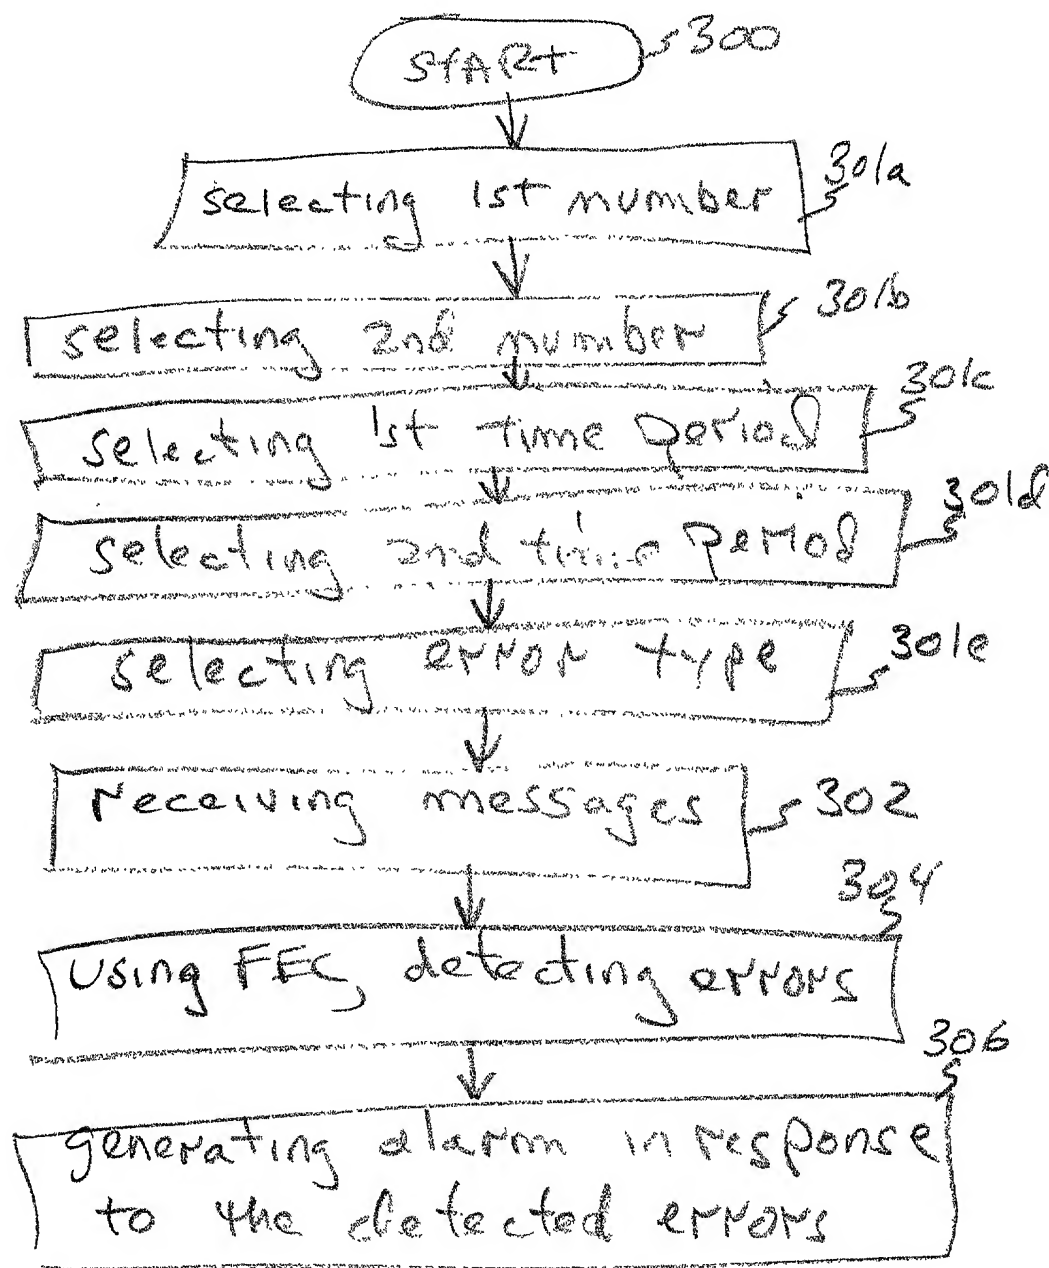 START 300
selecting 1st number 301a
selecting 2nd number 301b
selecting 1st time period 301c
selecting 2nd time period 301d
selecting error type 301e
receiving messages 302
304
using FEC, detecting errors
306
generating alarm in response
to the detected errors